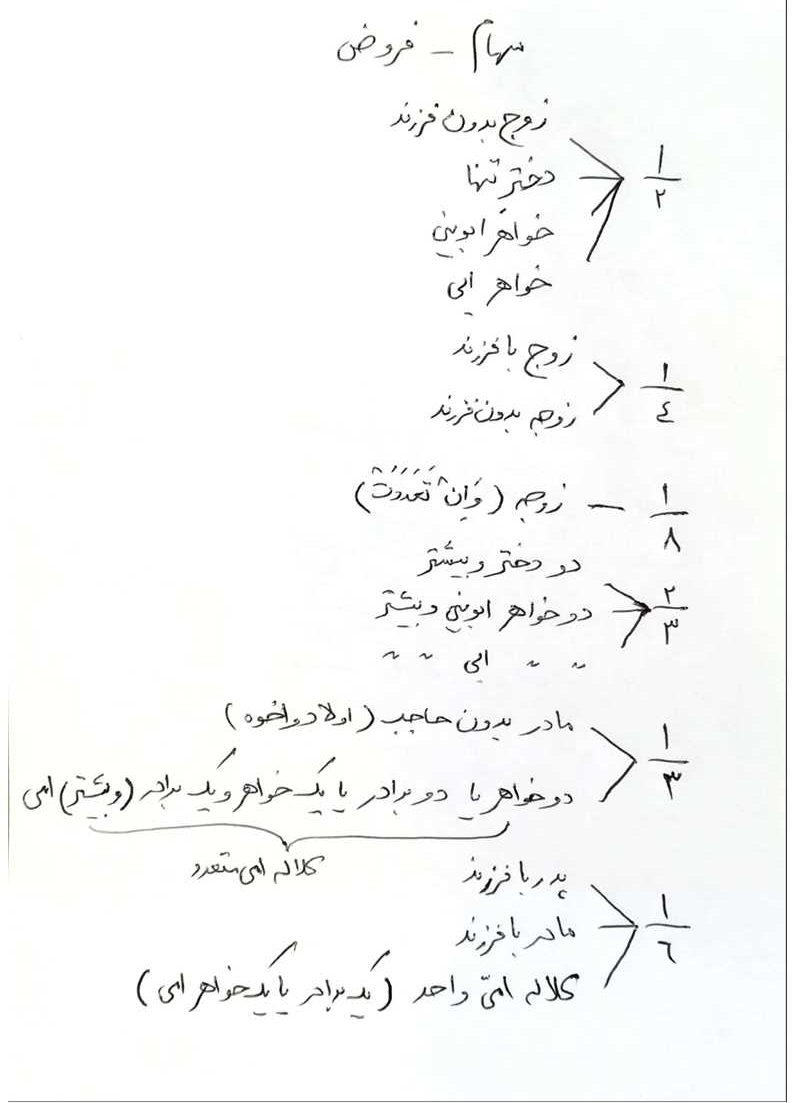 سهام - فروض
زوج بدون فرزند
دختر تنها
۱/۲
خواهر ابوینی
خواهر ابی
زوج با فرزند
۱/٤
زوجه بدون فرزند
۱/۸ — زوجه (وَإِنْ تَعَدَّدَتْ)
دو دختر و بیشتر
۲/۳ دو خواهر ابوینی و بیشتر
〃 〃 ابی 〃 〃
مادر بدون حاجب (اولاد و اخوه)
۱/۳
دو خواهر یا دو برادر یا یک خواهر و یک برادر (و بیشتر) امی
کلاله امی متعدد
پدر با فرزند
۱/٦ مادر با فرزند
کلاله امیّ واحد (یک برادر یا یک خواهر امی)